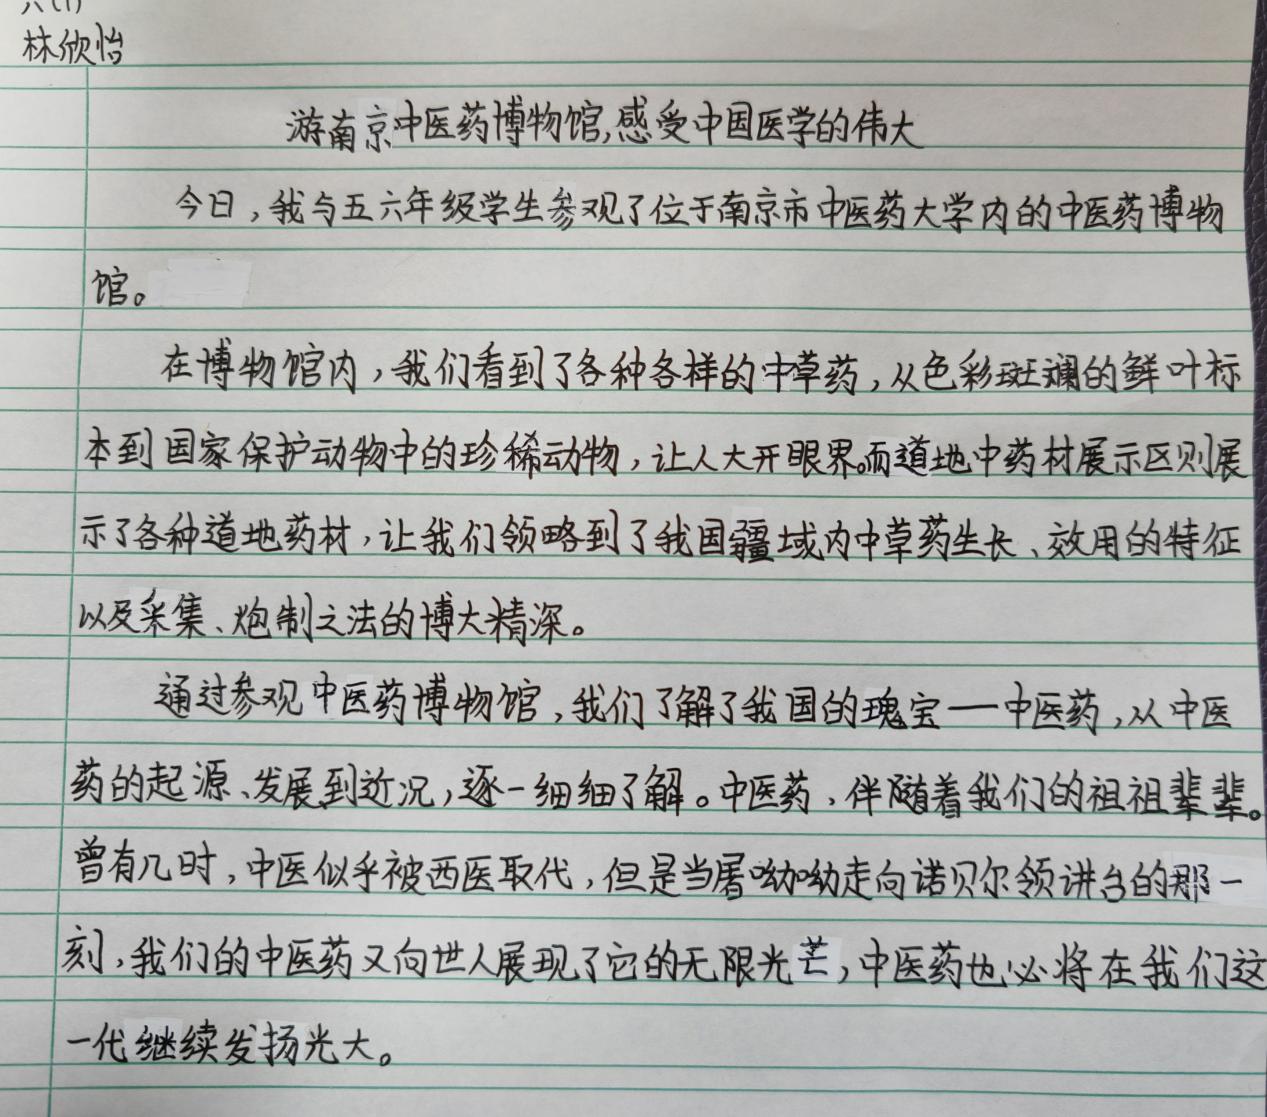 六(1)
林欣怡
游南京中医药博物馆,感受中国医学的伟大
今日，我与五六年级学生参观了位于南京市中医药大学内的中医药博物
馆。
在博物馆内，我们看到了各种各样的中草药，从色彩斑斓的鲜叶标
本到国家保护动物中的珍稀动物，让人大开眼界。而道地中药材展示区则展
示了各种道地药材，让我们领略到了我国疆域内中草药生长、效用的特征
以及采集、炮制之法的博大精深。
通过参观中医药博物馆，我们了解了我国的瑰宝——中医药，从中医
药的起源、发展到近况，逐一细细了解。中医药，伴随着我们的祖祖辈辈。
曾有几时，中医似乎被西医取代，但是当屠呦呦走向诺贝尔领讲台的那一
刻，我们的中医药又向世人展现了它的无限光芒，中医药也必将在我们这
一代继续发扬光大。